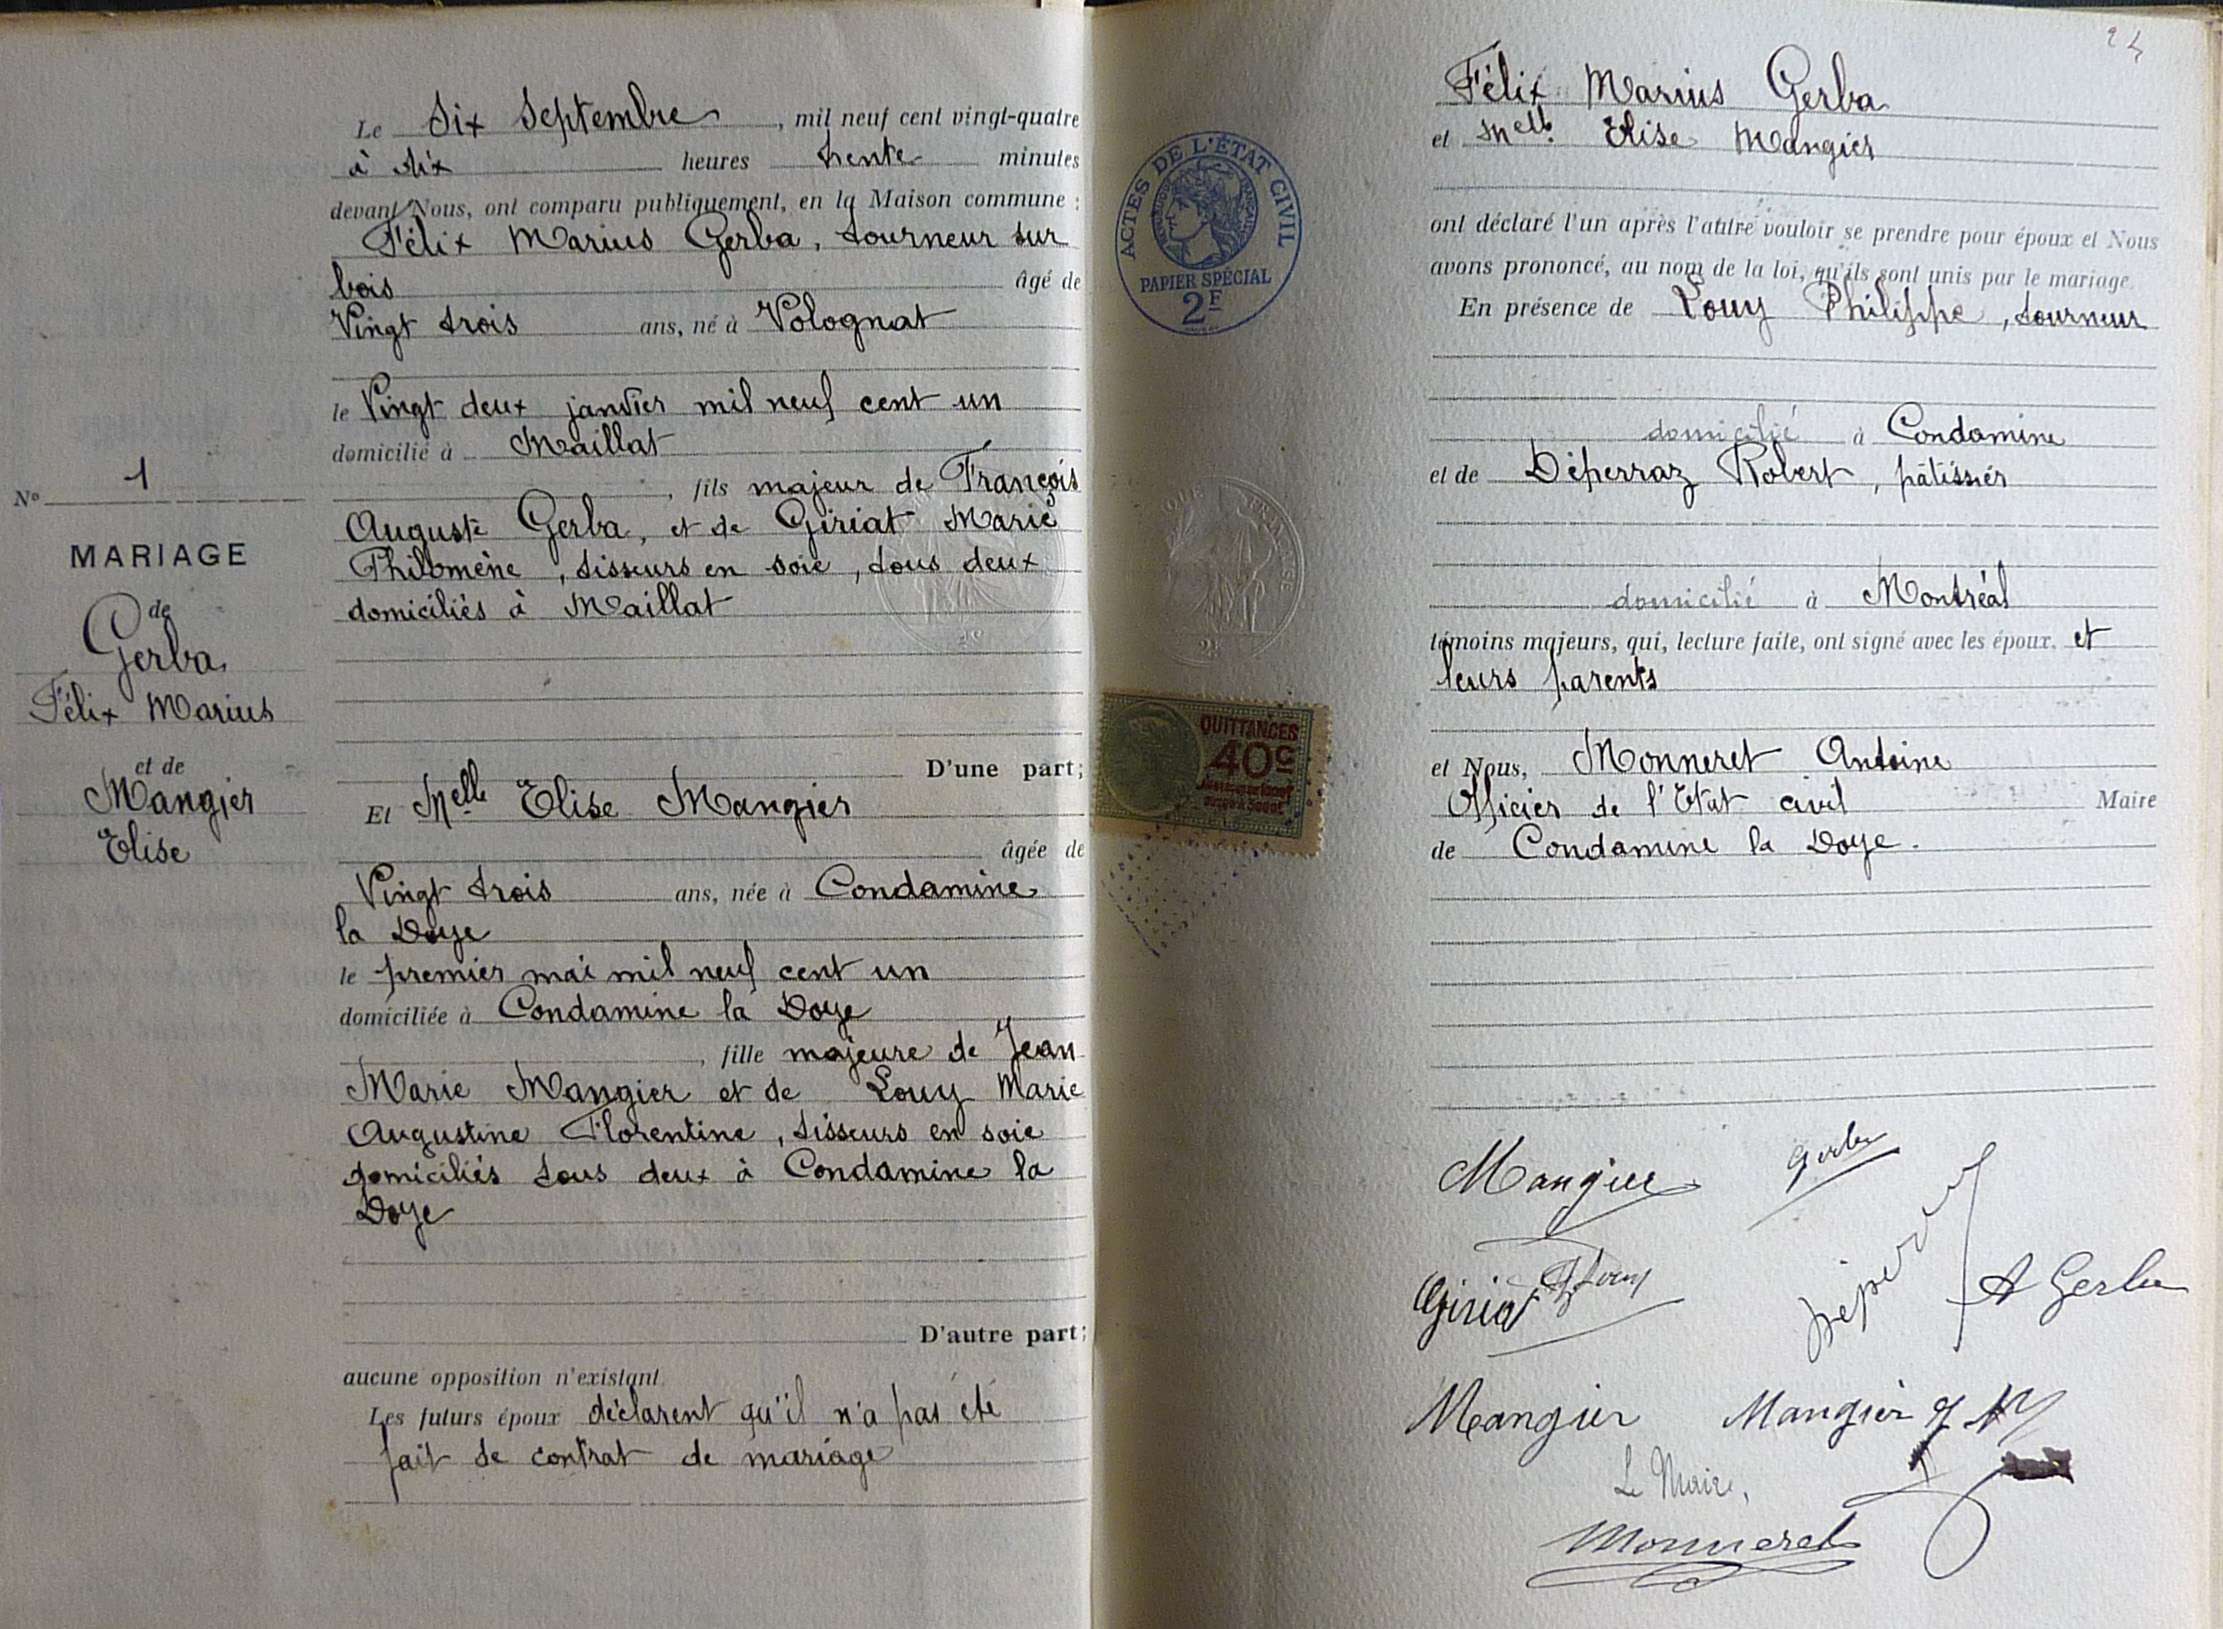 N° 1
MARIAGE
de
Gerba
Félix Marius
et de
Mangier
Elise
Le Six Septembre, mil neuf cent vingt-quatre
à dix heures trente minutes
devant Nous, ont comparu publiquement, en la Maison commune :
Félix Marius Gerba, tourneur sur
bois âgé de
Vingt trois ans, né à Volognat
le Vingt deux janvier mil neuf cent un
domicilié à Maillat
, fils majeur de François
Auguste Gerba, et de Giriat Marie
Philomène, tisseurs en soie, tous deux
domiciliés à Maillat
D'une part;
Et Melle Elise Mangier
âgée de
Vingt trois ans, née à Condamine
la Doye
le premier mai mil neuf cent un
domiciliée à Condamine la Doye
, fille majeure de Jean
Marie Mangier et de Louy Marie
Augustine Florentine, tisseurs en soie
domiciliés tous deux à Condamine la
Doye
D'autre part;
aucune opposition n'existant.
Les futurs époux déclarent qu'il n'a pas été
fait de contrat de mariage
ACTES DE L'ÉTAT CIVIL
PAPIER SPÉCIAL
2F
QUITTANCES
40c
24
Félix Marius Gerba
et Melle Elise Mangier
ont déclaré l'un après l'autre vouloir se prendre pour époux et Nous
avons prononcé, au nom de la loi, qu'ils sont unis par le mariage.
En présence de Louy Philippe, tourneur
domicilié à Condamine
et de Déperraz Robert, pâtissier
domicilié à Montréal
témoins majeurs, qui, lecture faite, ont signé avec les époux. et
leurs parents
et Nous, Monneret Antoine
Officier de l'Etat civil Maire
de Condamine la Doye.
Mangier Gerba
Giriat Louy A Gerba
Mangier Mangier J M
Le Maire,
Monneret